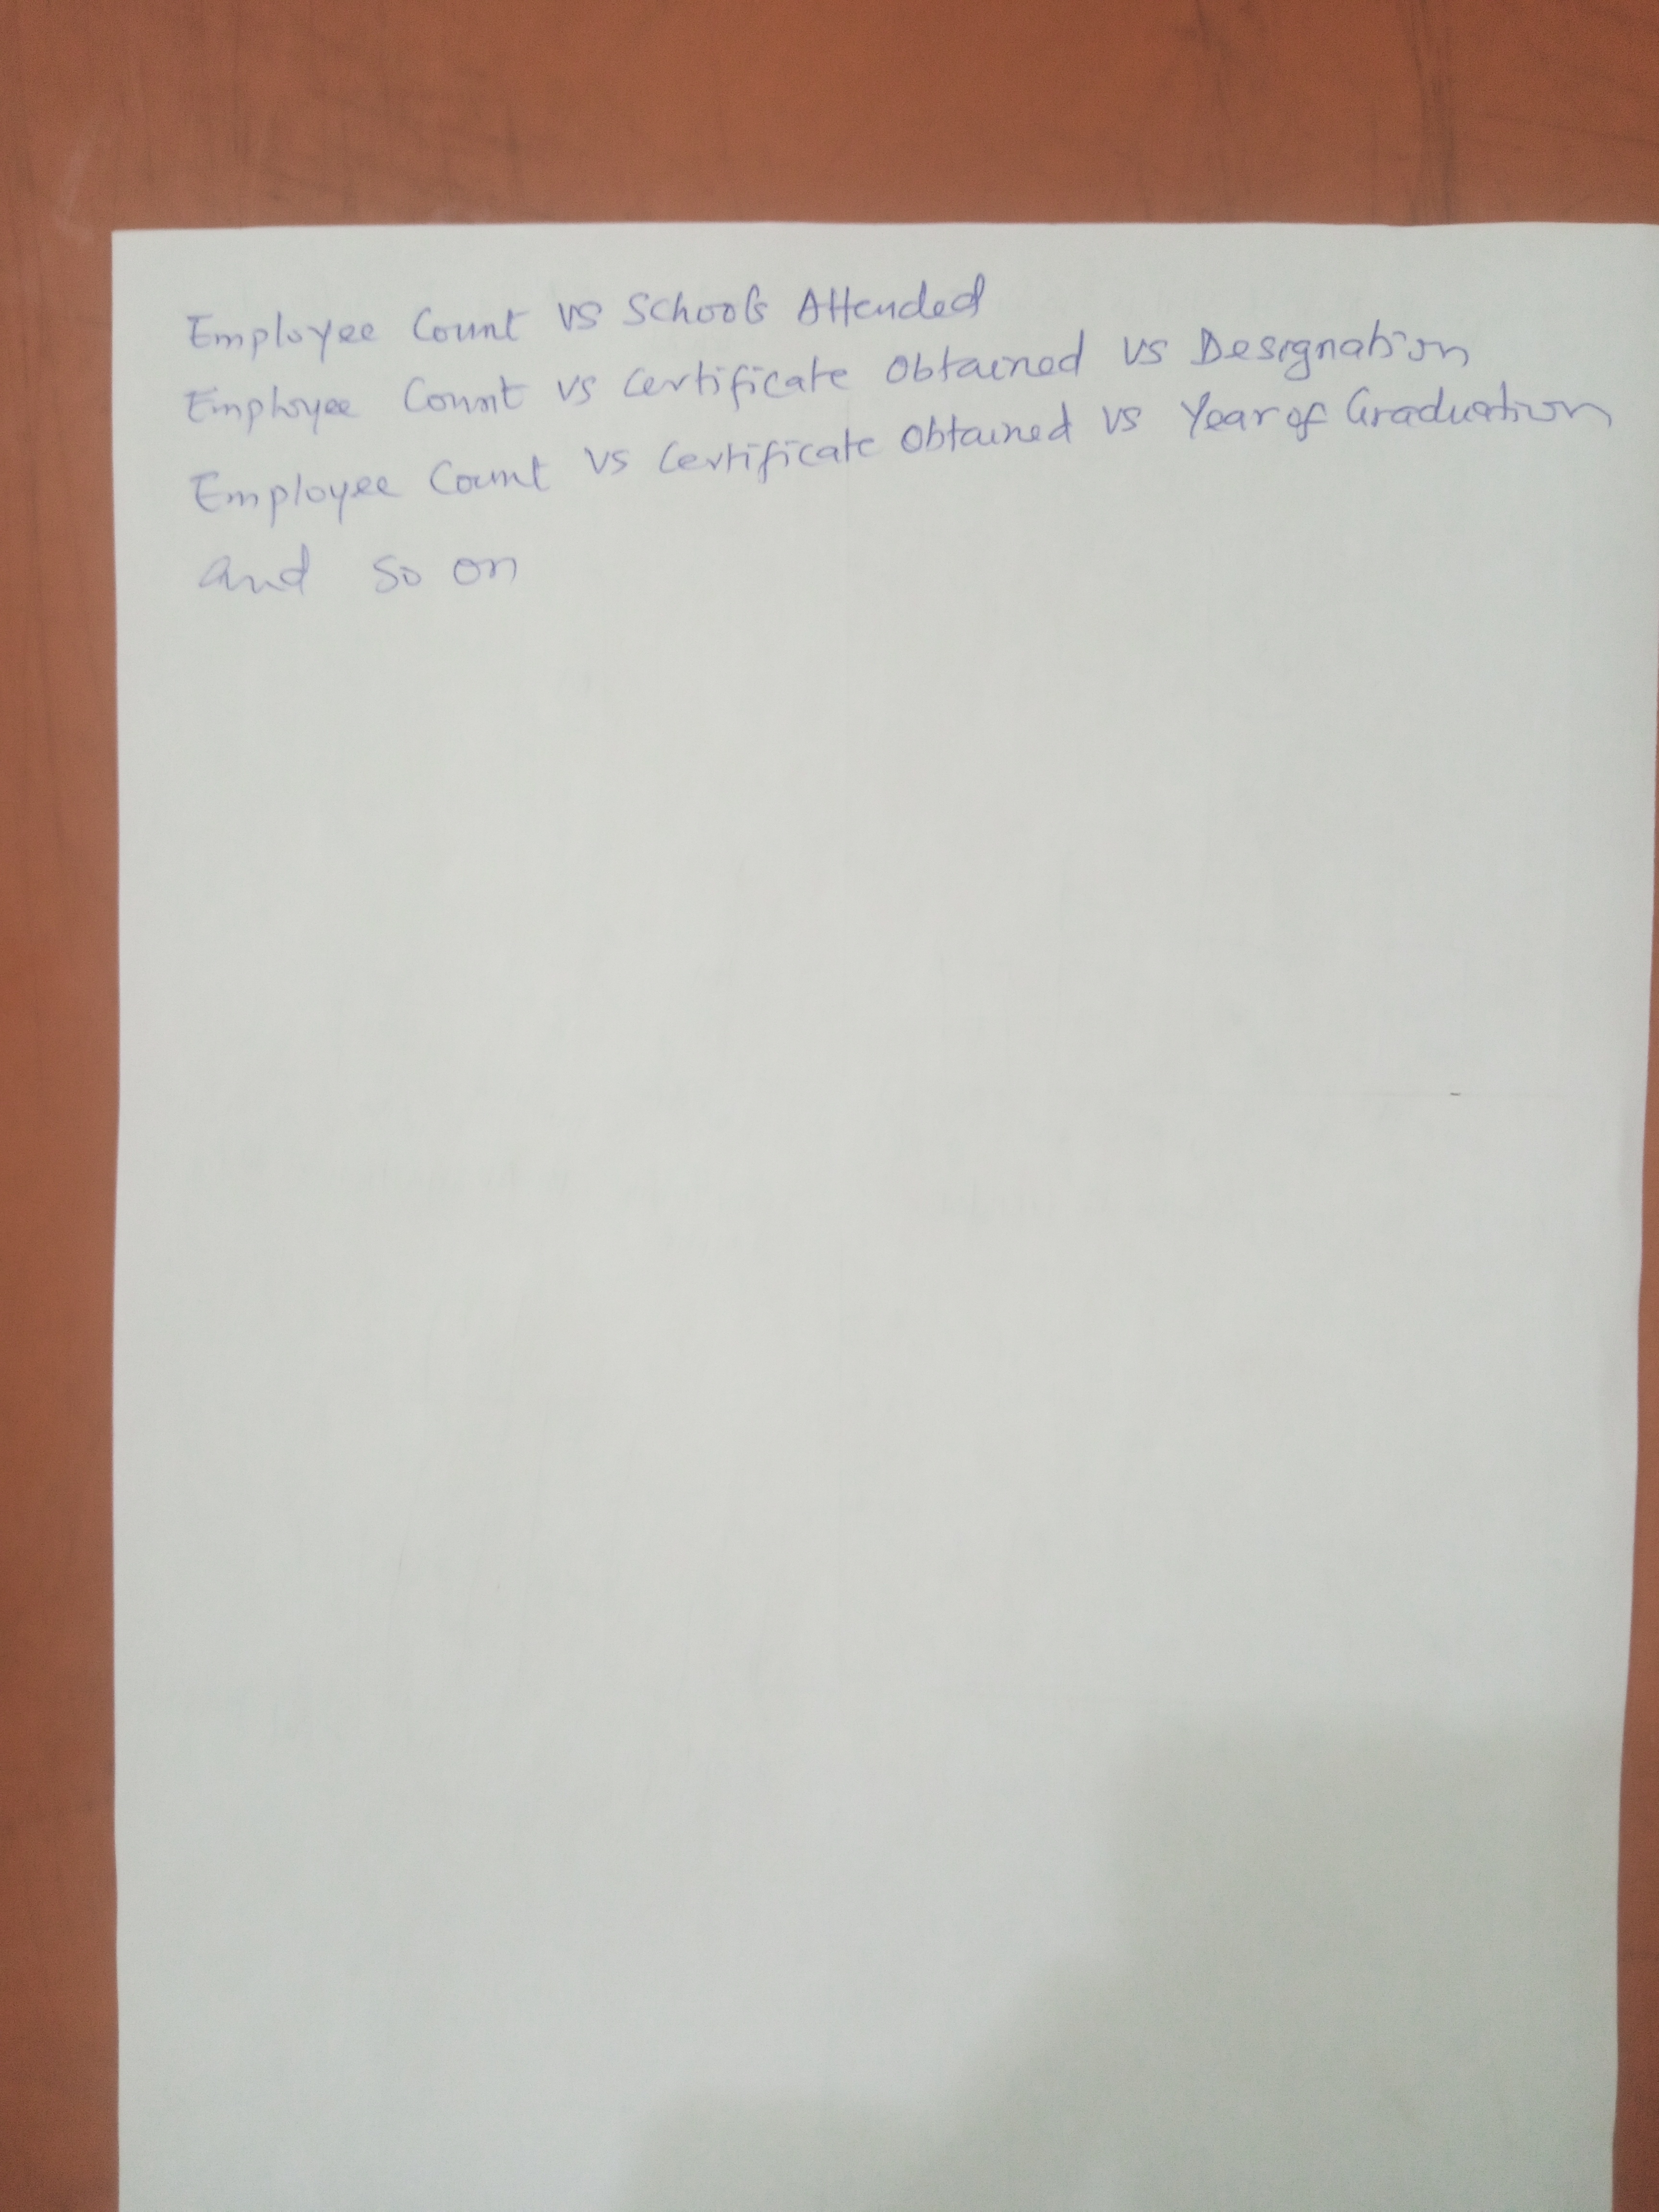 Employee Count vs Schools Attended
Employee Count vs Certificate Obtained vs Designation
Employee Count vs Certificate Obtained vs Year of Graduation
and so on